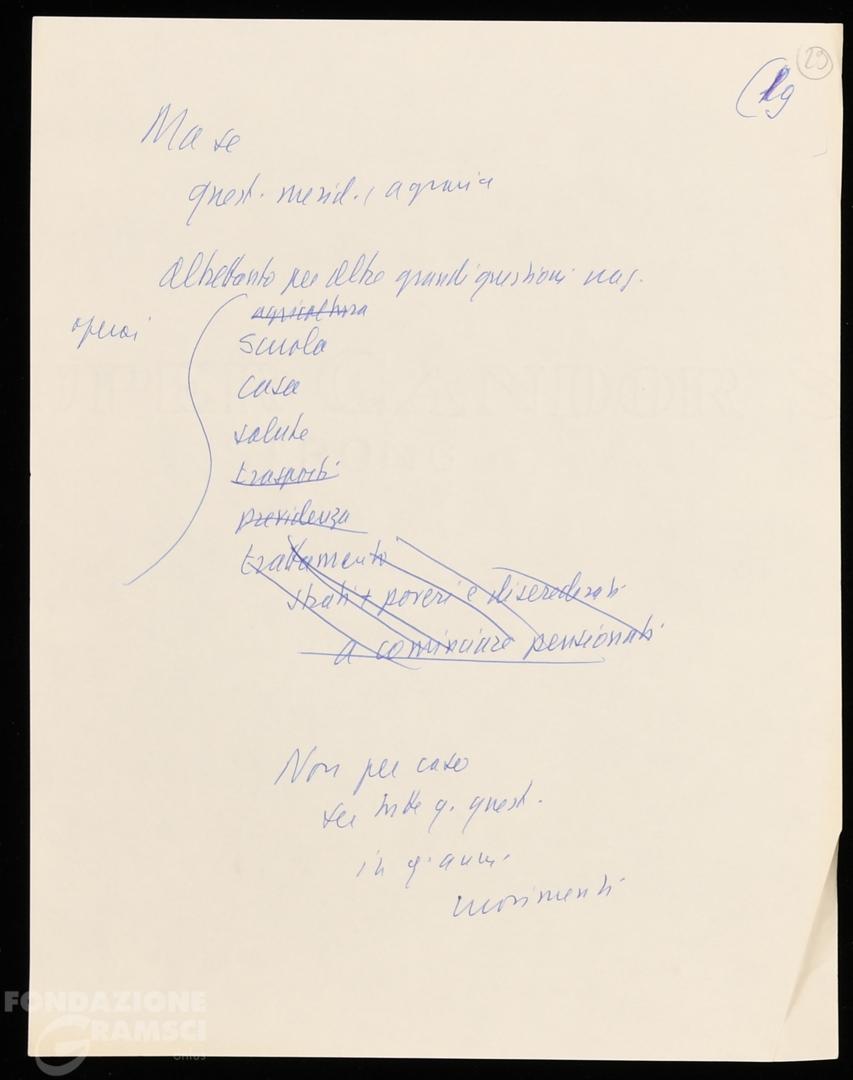 29
(29
Ma se
quest. merid., agraria
Altrettanto per altre grandi questioni naz.
operai
agricoltura
scuola
casa
salute
trasporti
previdenza
trattamento
strati + poveri e diseredati
a cominciare pensionati
Non per caso
su tutte q. quest.
in q. anni
movimenti
FONDAZIONE
GRAMSCI
onlus